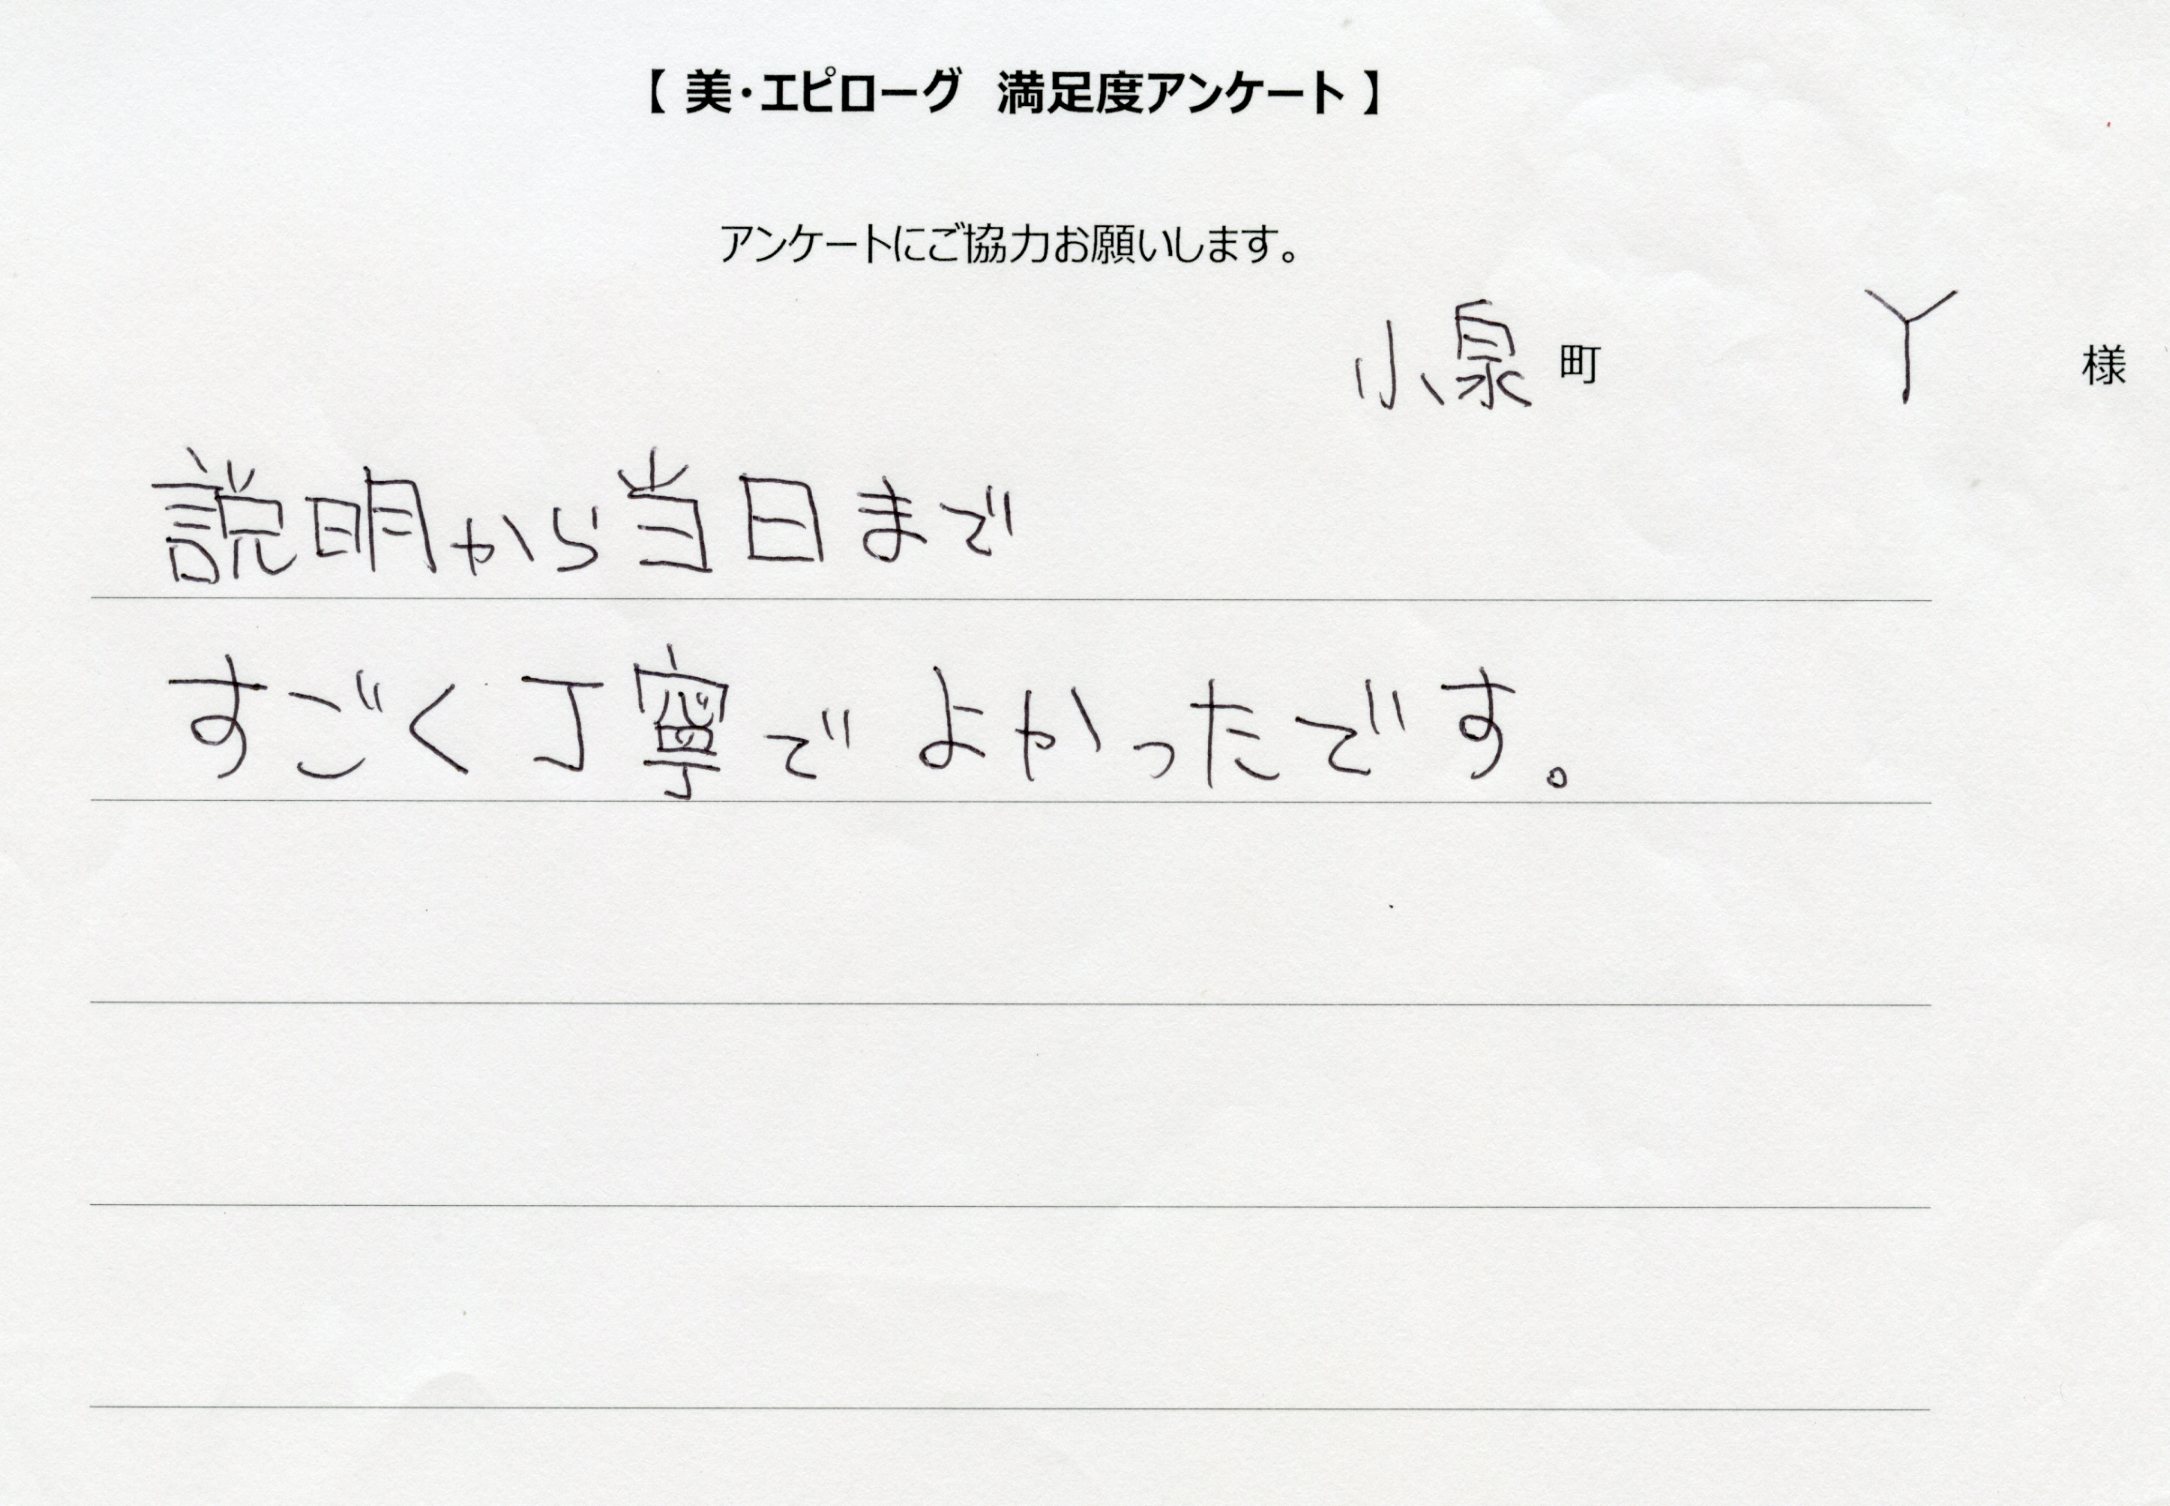 【 美・エピローグ 満足度アンケート 】
アンケートにご協力お願いします。
小泉 町 Y 様
説明から当日まで
すごく丁寧でよかったです。